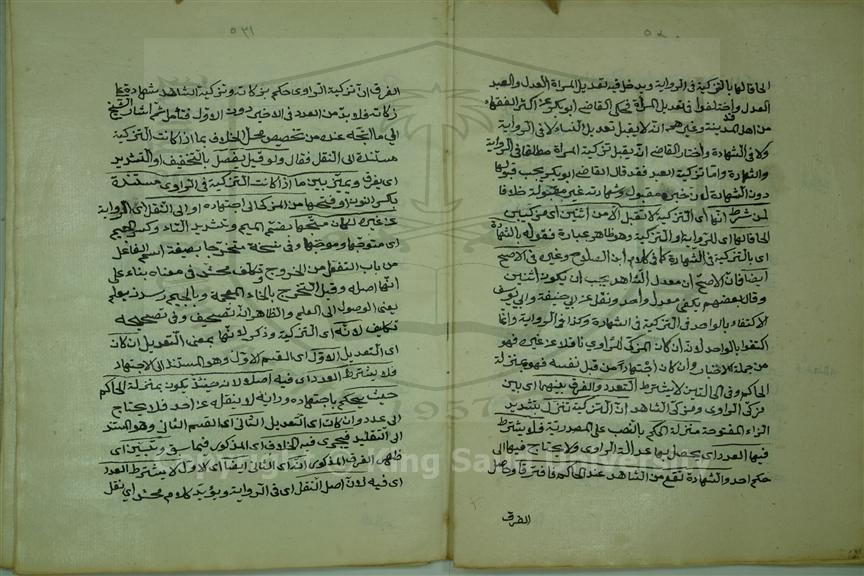 ٥٣٠
الحاقا لها بالتزكية في الرواية ويدخل فيه تعديل المرأة العدل والعبد
العدل واختلفوا في تعديل المرأة فحكى القاضي ابوبكر عن اكثر الفقهاء
من اهل المدينة وغيرهم انه لا يقبل تعديل النساء لا في الرواية
ولا في الشهادة واختار القاضي انه يقبل تزكية المرأة مطلقا في الرواية
والشهادة واما تزكية العبد فقد قال القاضي ابوبكر يجب قبولها
دون الشهادة لان خبره مقبول وشهادته غير مقبولة خلافا
لمن شرط انها اي التزكية لا تقبل الا من اثنين اي مزكيين
الحاقا لها اي للرواية والتزكية وهو ظاهر عبارة فقوله بالشهادة
اي بالتزكية في الشهادة كما في كلام ابن الصلاح وغيره في الاصح
ايضا فان الاصح ان معدل الشاهد يجب ان يكون اثنين
وقال بعضهم يكفي معدل واحد ونقل عن ابي حنيفة وابي يوسف
الاكتفاء بالواحد في التزكية في الشهادة وكذا في الرواية وانما
اكتفوا بالواحد لانه ان كان المزكي للراوي ناقلا عن غيره فهو
من جملة الاخبار وان كان اجتهادا من قبل نفسه فهو بمنزلة
الحاكم وفي الحالتين لا يشترط التعدد والفرق بينهما اي بين
مزكي الراوي ومزكي الشاهد ان التزكية تنزل بتشديد
الزاء المفتوحة منزلة الحكم بالنصب على المصدرية فلا يشترط
فيها العدد اي يحصل بها عدالة الراوي فلا يحتاج فيها الى
حكم احد والشهادة تقع من الشاهد عند الحاكم فافترقا وحاصل
الفرق
٥٣١
الفرق ان تزكية الراوي حكم بزكاته وتزكية الشاهد شهادة على
زكاته فلا بد من العدد في الاخير دون الاول فتأمل ثم اشار الشيخ
الى ما اتجه عنده من تخصيص محل الخلاف بما اذا كانت التزكية
مستندة الى النقل فقال ولو قيل يفصل بالتخفيف او التشديد
اي يفرق ويميز بين ما اذا كانت التزكية في الراوي مستندة
بكسر النون وفتحها من المزكي الى اجتهاده او الى النقل اي الرواية
عن غيره لكان متجها بضم الميم وتشديد التاء وكسر الجيم
اي متوجها وموجها وفي نسخة متخرجا بصيغة اسم الفاعل
من باب التفعل من الخروج وتكلف محشي في معناه بناء على
انها اصله وقيل التحرج بالخاء المعجمة وبالجيم
يعني الوصول الى العلم والظاهر انه تصحيف وفي تصحيحه
تكليف لانه اي التزكية وذكر لانها بمعنى التعديل ان كان
اي التعديل الاول اي القسم الاول وهو المستند الى الاجتهاد
فلا يشترط العدد اي فيه اصلا لانه حينئذ يكون بمنزلة الحاكم
حيث يحكم باجتهاده ودرايه لا ينقله عن احد فلا يحتاج
الى عدد وان كان اي التعديل الثاني اي القسم الثاني وهو المستند
الى التقليد فيجري فيه الخلاف اي المذكور فيما سبق ويتبين اي
ظهر الفرق المذكور انه اي الثاني ايضا اي كالاول لا يشترط العدد
اي فيه لان اصل النقل اي في الرواية ويؤيد كلام محشي اي نقل
1957
Copyright © King Saud University